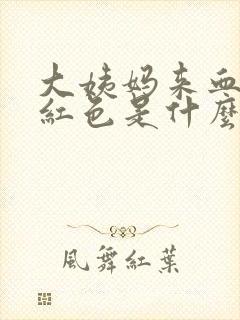 大姨妈来血
红色是什麼
風舞紅葉